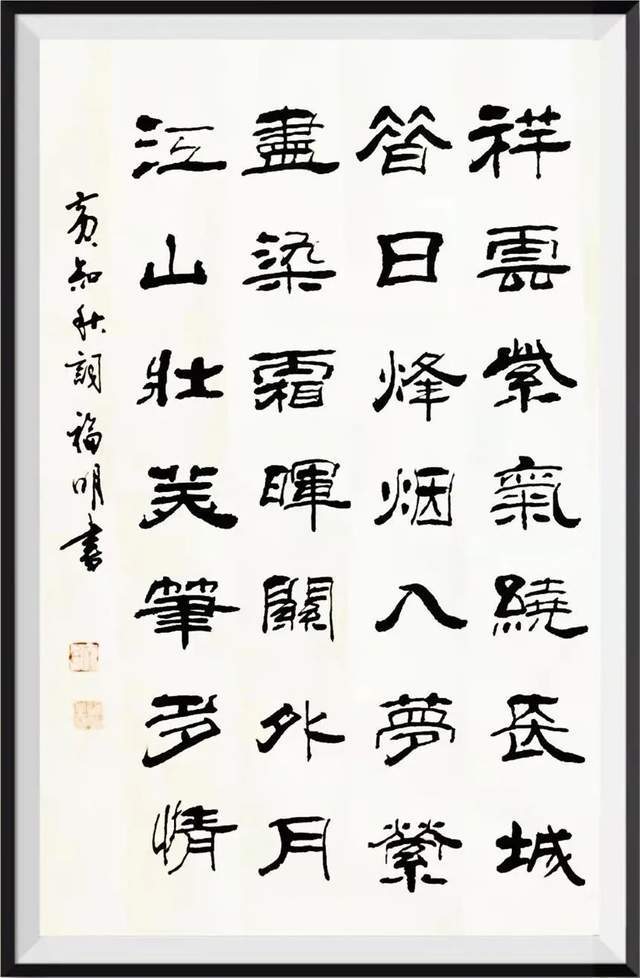 祥雲紫氣繞長城
昔日烽烟入夢縈
盡染霜暉關外月
江山壯美筆多情
黄知秋詞福明書